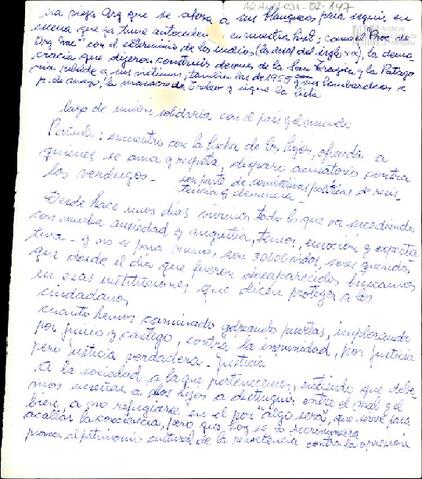 AR-ANM-CDR-02-147
la vieja Arg que se aferra a sus blanqueos, para seguir en
escena que ya tiene antecedentes en nuestra hist.: como el Proc de
Org Nac con el exterminio de los indios, (la real del siglo XIX), la demo
cracia que dijeron construir después de la San Terapia y la Patago
nia rebelde a sus víctimas, también las de 1955 con bombardeos a
p. de mayo, la masacre de Trelew y sigue la lista
lazo de unión, solidaria con el país y el mundo:
Pañuelo: encuentro con la lucha de los hijos, ofrenda a
quienes se ama y respeta, disparo acusatorio contra
los verdugos - son parte de convicciones políticas de resis
tencia y denuncia -
Desde hace unos días vivimos todo lo que va sucediendo
con mucha ansiedad y angustia, temor, emoción y expecta
tiva - y no es para menos, son 30000 vidas, seres queridos
que desde el día que fueron desaparecidos, buscamos
en esas instituciones que dicen proteger a los
ciudadanos
cuánto hemos caminado golpeando puertas, implorando
por juicio y castigo, contra la impunidad, por justicia
pero justicia verdadera - justicia
A la sociedad, a la que pertenecemos, entiendo que debe
mos enseñar a los hijos a distinguir entre el mal y el
bien, a no refugiarse en el por "algo será", que sirve para
acallar la conciencia, pero que hoy se lo
al patrimonio cultural de la resistencia contra la opresión